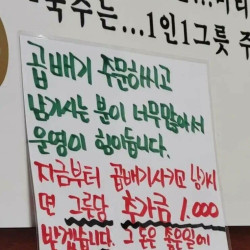 국수는...1인1그릇 주
곱배기 주문하시고
남기시는 분이 너무많아서
운영이 힘이듭니다.
지금부터 곱배기시키고 남기시
면 그릇당 추가금 1.000
받겠습니다. 그 돈은 좋은일에